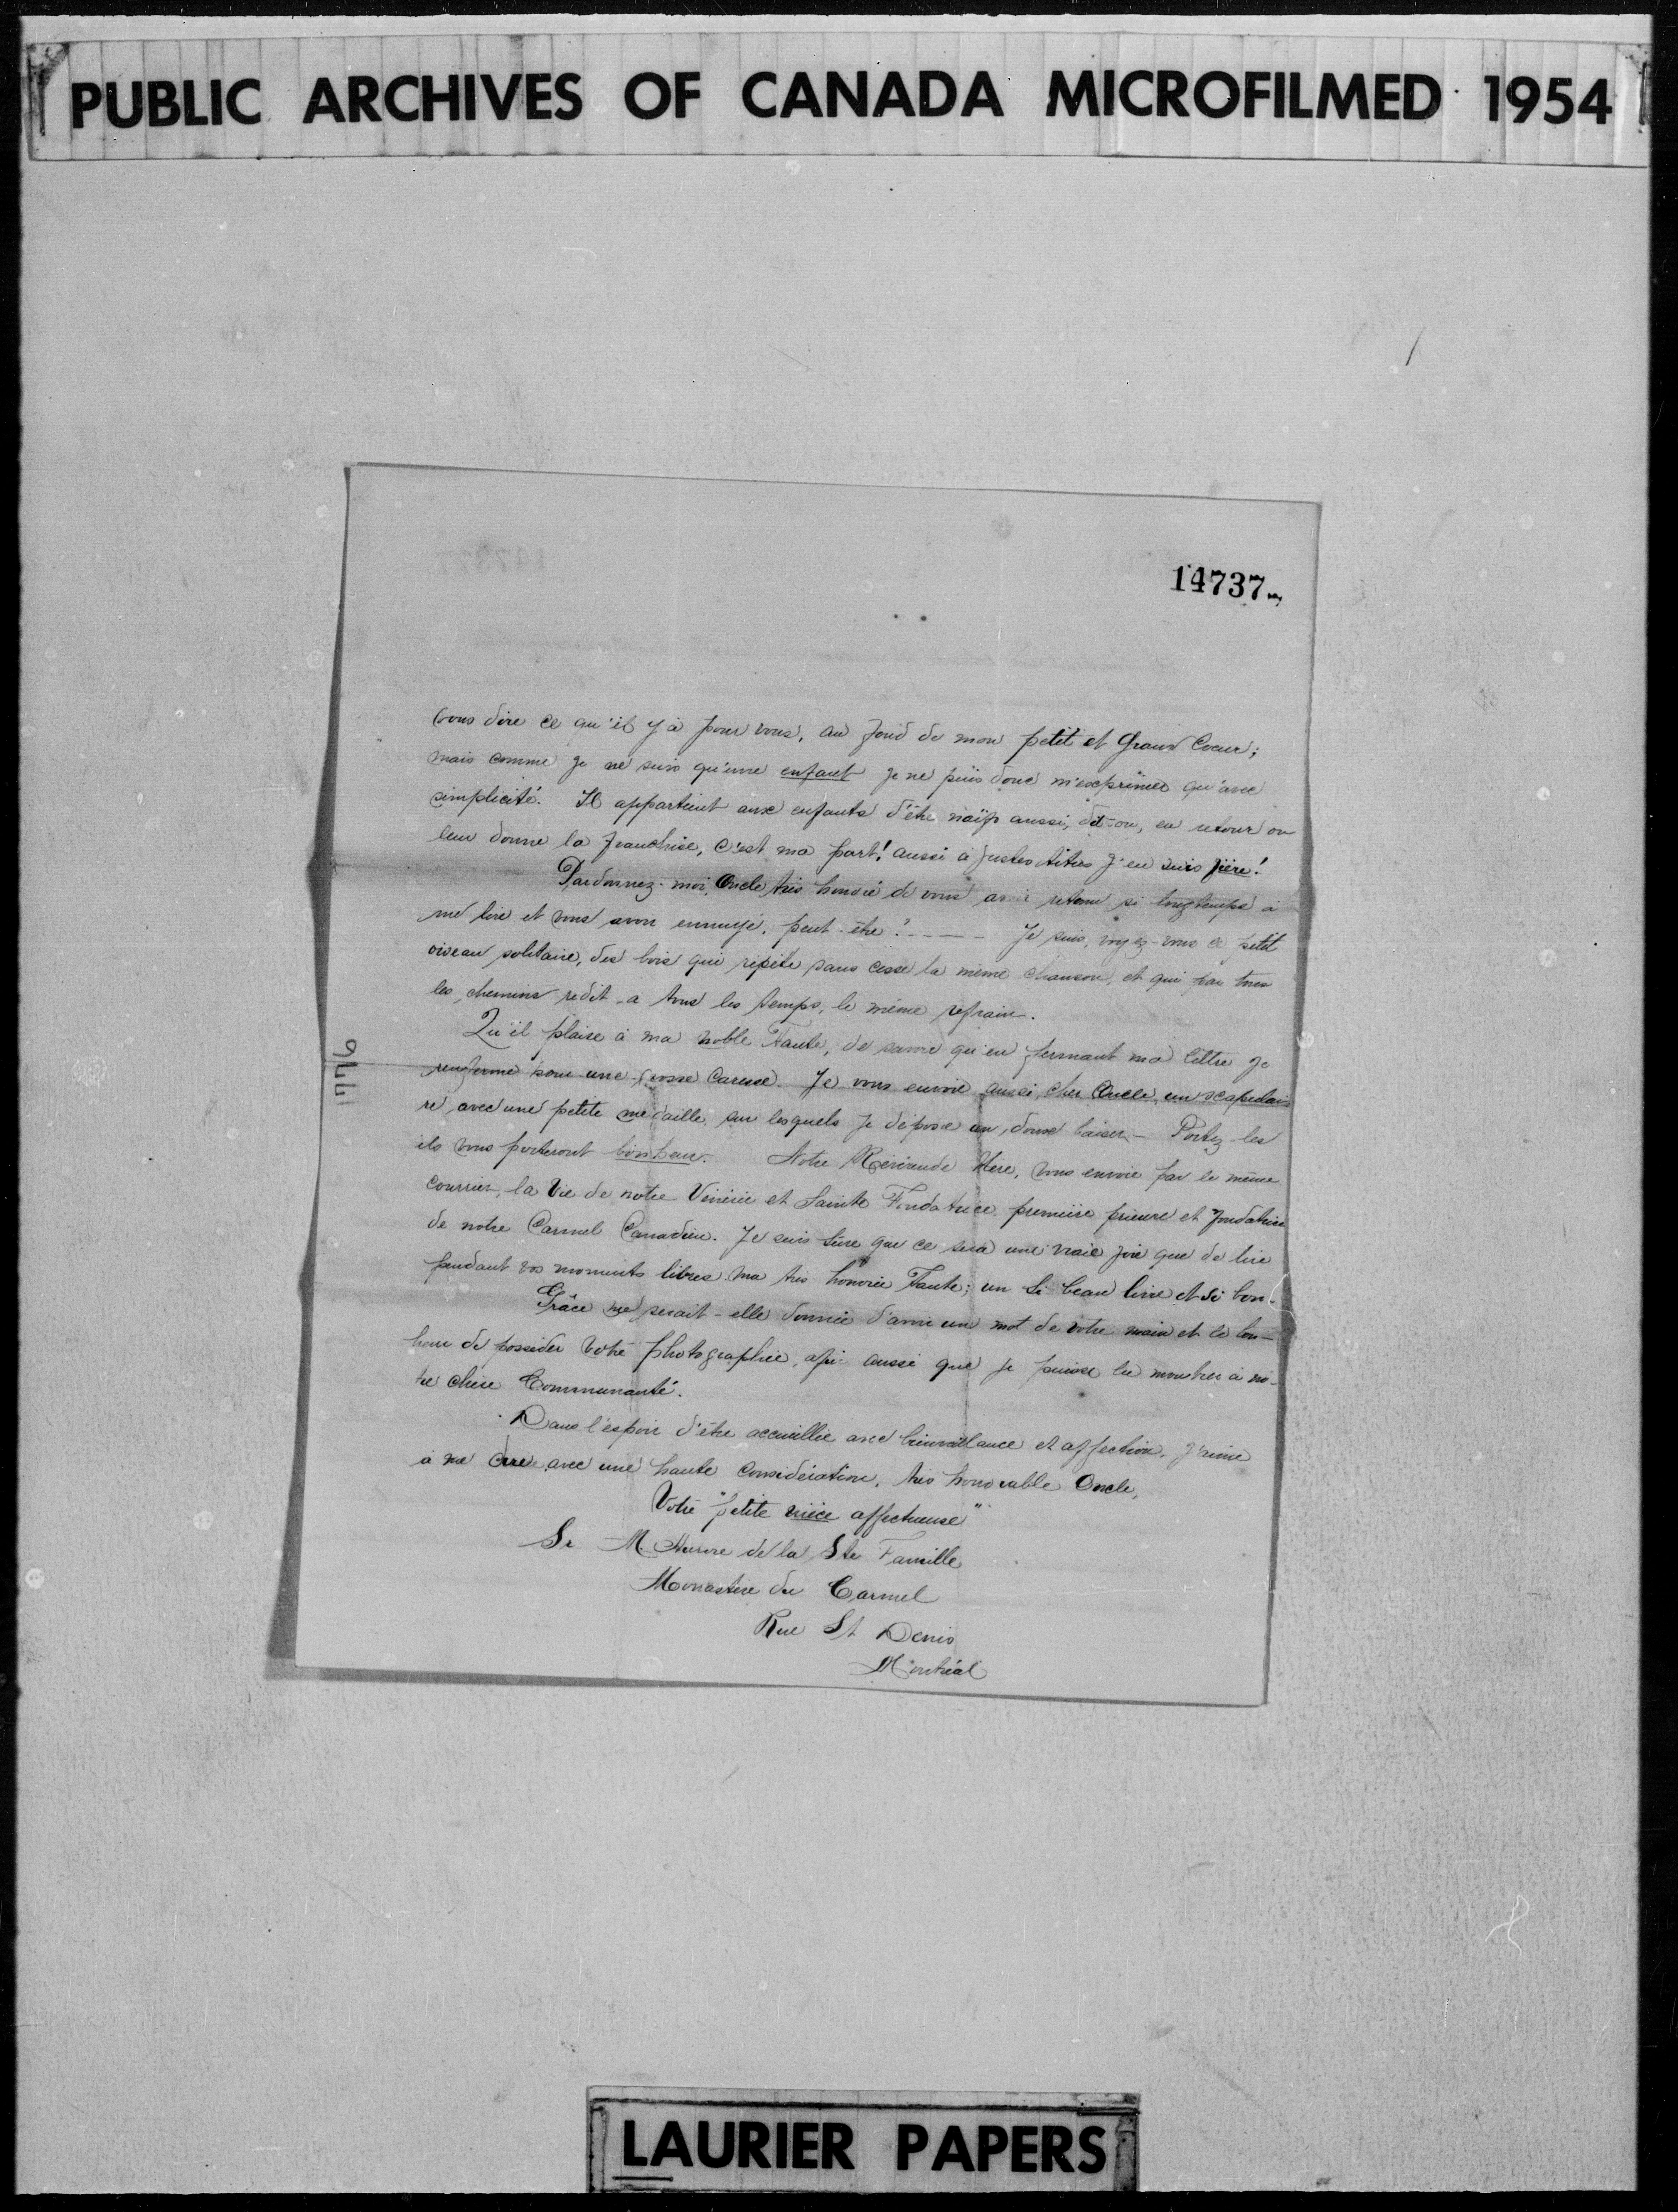 PUBLIC ARCHIVES OF CANADA MICROFILMED 1954
14737
vous dire ce qu'il y a pour vous, au fond de mon petit et Grand Coeur;
mais comme je ne suis qu'une enfant je ne puis donc m'exprimer qu'avec
simplicité. Il appartient aux enfants d'être naïfs aussi, dit-on, en retour on
leur donne la franchise, c'est ma part! aussi à justes titres j'en suis fière!
Pardonnez-moi, Oncle très honoré de vous avoir retenu si longtemps à
me lire et vous avoir ennuyé, peut-être? - - - - Je suis, voyez-vous ce petit
oiseau solitaire, des bois qui répète sans cesse la même chanson, et qui par tous
les chemins redit à tous les temps, le même refrain.
Qu'il plaise à ma noble Tante, de savoir qu'en fermant ma lettre je
renferme pour une grosse Caresse. Je vous envoie aussi, cher Oncle, un scapulai-
re avec une petite médaille sur lesquels je dépose un doux baiser - Portez-les
ils vous porteront bonheur. Notre Révérende Mère, vous envoie par le même
courrier, la Vie de notre Vénérée et Sainte Fondatrice, première prieure et fondatrice
de notre Carmel Canadien. Je suis sûre que ce sera une vraie joie que de lire
pendant vos moments libres ma très honorée Tante; un si beau livre et si bon.
Grâce me serait-elle donnée d'avoir un mot de votre main et le bon-
heur de posséder votre photographie, afin aussi que je puisse la montrer à no-
tre chère Communauté.
Dans l'espoir d'être accueillie avec bienveillance et affection, j'aime
à me dire avec une haute considération, très honorable Oncle,
Votre "petite nièce affectueuse"
Sr M. Aurore de la Ste Famille
Monastère du Carmel
Rue St Denis
Montréal
LAURIER PAPERS